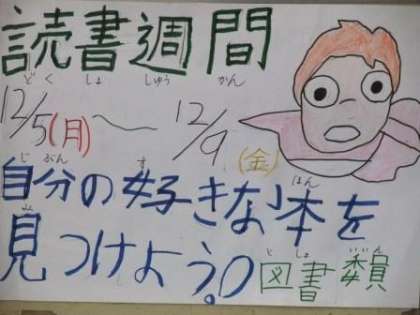 読書週間
どくしょしゅうかん
12/5(月)～12/9(金)
じぶん す ほん
自分の好きな本を
み
見つけよう。
としょ いいん
図書委員